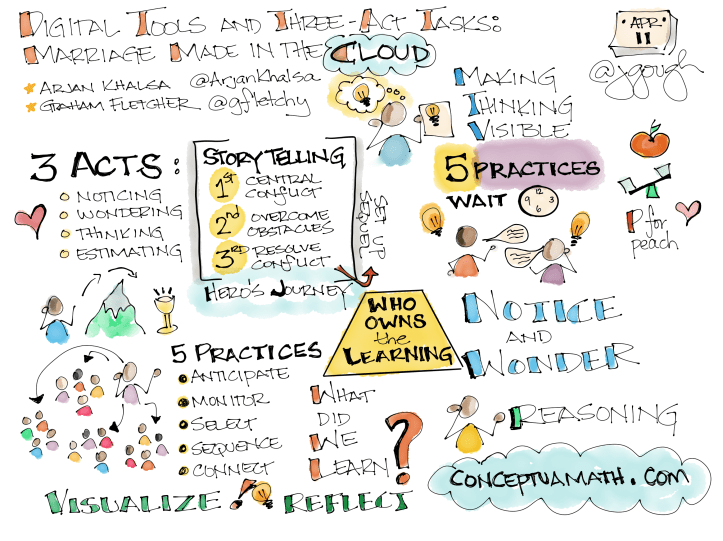 DIGITAL TOOLS AND THREE-ACT TASKS:
MARRIAGE MADE IN THE CLOUD
ARJAN KHALSA @ArjanKhalsa
GRAHAM FLETCHER @gfletchy
APR
11
@jgough
MAKING
THINKING
VISIBLE
3 ACTS:
NOTICING
WONDERING
THINKING
ESTIMATING
STORY TELLING
1st CENTRAL
CONFLICT
2nd OVERCOME
OBSTACLES
3RD RESOLVE
CONFLICT
SET UP
SEQUEL
HERO'S JOURNEY
5 PRACTICES
WAIT
12
3
6
9
P for
peach
WHO
OWNS
the
LEARNING
NOTICE
AND
WONDER
5 PRACTICES
ANTICIPATE
MONITOR
SELECT
SEQUENCE
CONNECT
WHAT
DID
WE
LEARN?
REASONING
CONCEPTUAMATH.COM
VISUALIZE ! REFLECT